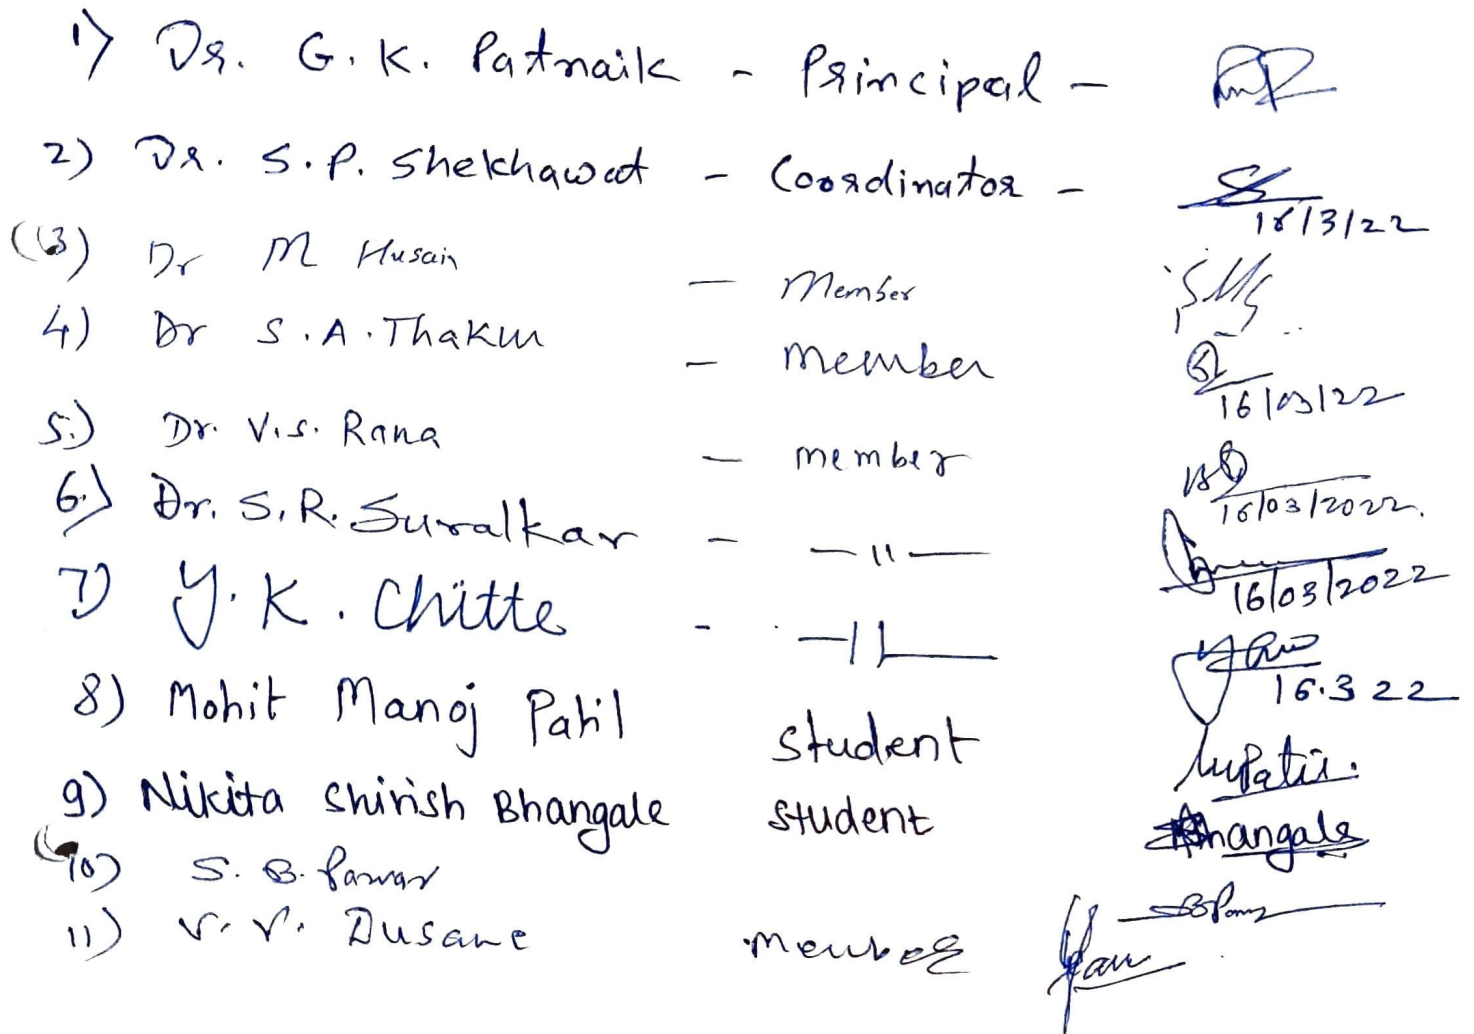 1) Dr. G. K. Patnaik - Principal -
2) Dr. S. P. Shekhawat - Coordinator - 16/3/22
(3) Dr M Husain - Member
4) Dr S. A. Thakur - Member 16/03/22
5.) Dr. V.S. Rana - member 16/03/2022.
6.) Dr. S. R. Suralkar - —"— 16/03/2022
7) Y. K. Chitte - —"— 16.3 22
8) Mohit Manoj Patil Student MPatil.
9) Nikita Shirish Bhangale Student Bhangale
10) S. B. Pawar
11) V. V. Dusane Member